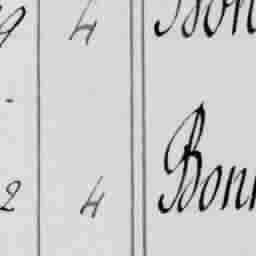 9 4 Bon
2 4 Bon